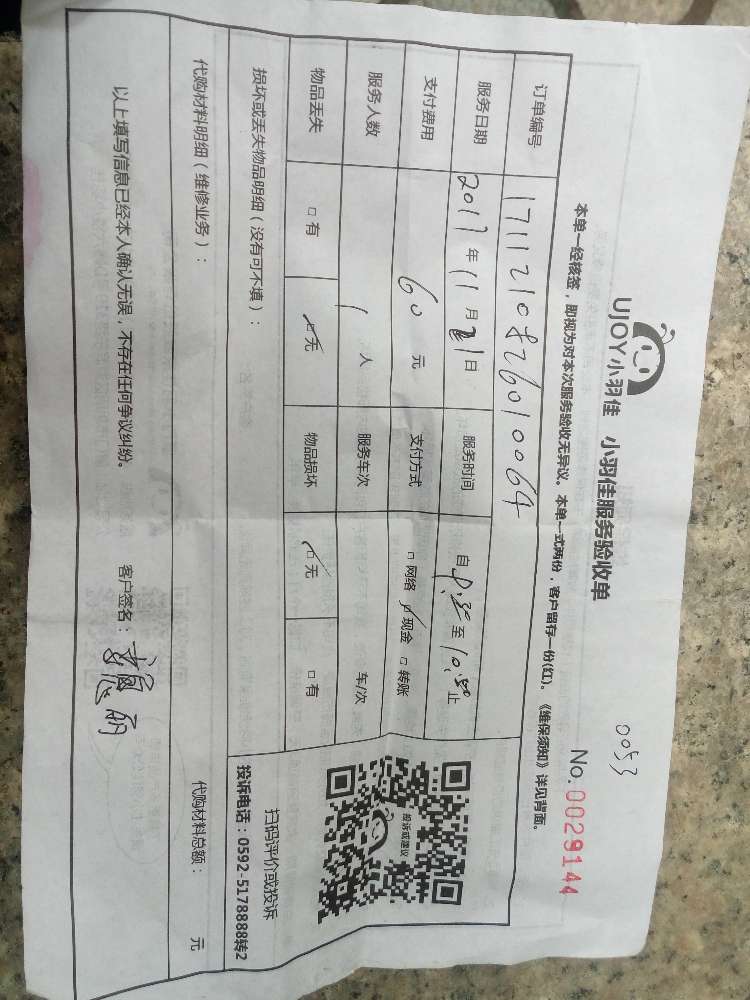 0053
UJOY小羽佳 小羽佳服务验收单 No. 0029144
本单一经核签，即视为对本次服务验收无异议。本单一式两份，客户留存一份(红)。《维保须知》详见背面。
订单编号 171121082601 0064
服务日期 2017年11月21日 服务时间 自 9:30 至 10:30 止
支付费用 60 元 支付方式 □网络 ☑现金 □转账
服务人数 1 人 服务车次 车/次
物品丢失 □有 ☑无 物品损坏 ☑无 □有
投诉或建议
损坏或丢失物品明细（没有可不填）：
扫码评价或投诉
投诉电话：0592-5178888转2
代购材料明细（维修业务）： 代购材料总额： 元
以上填写信息已经本人确认无误，不存在任何争议纠纷。 客户签名：